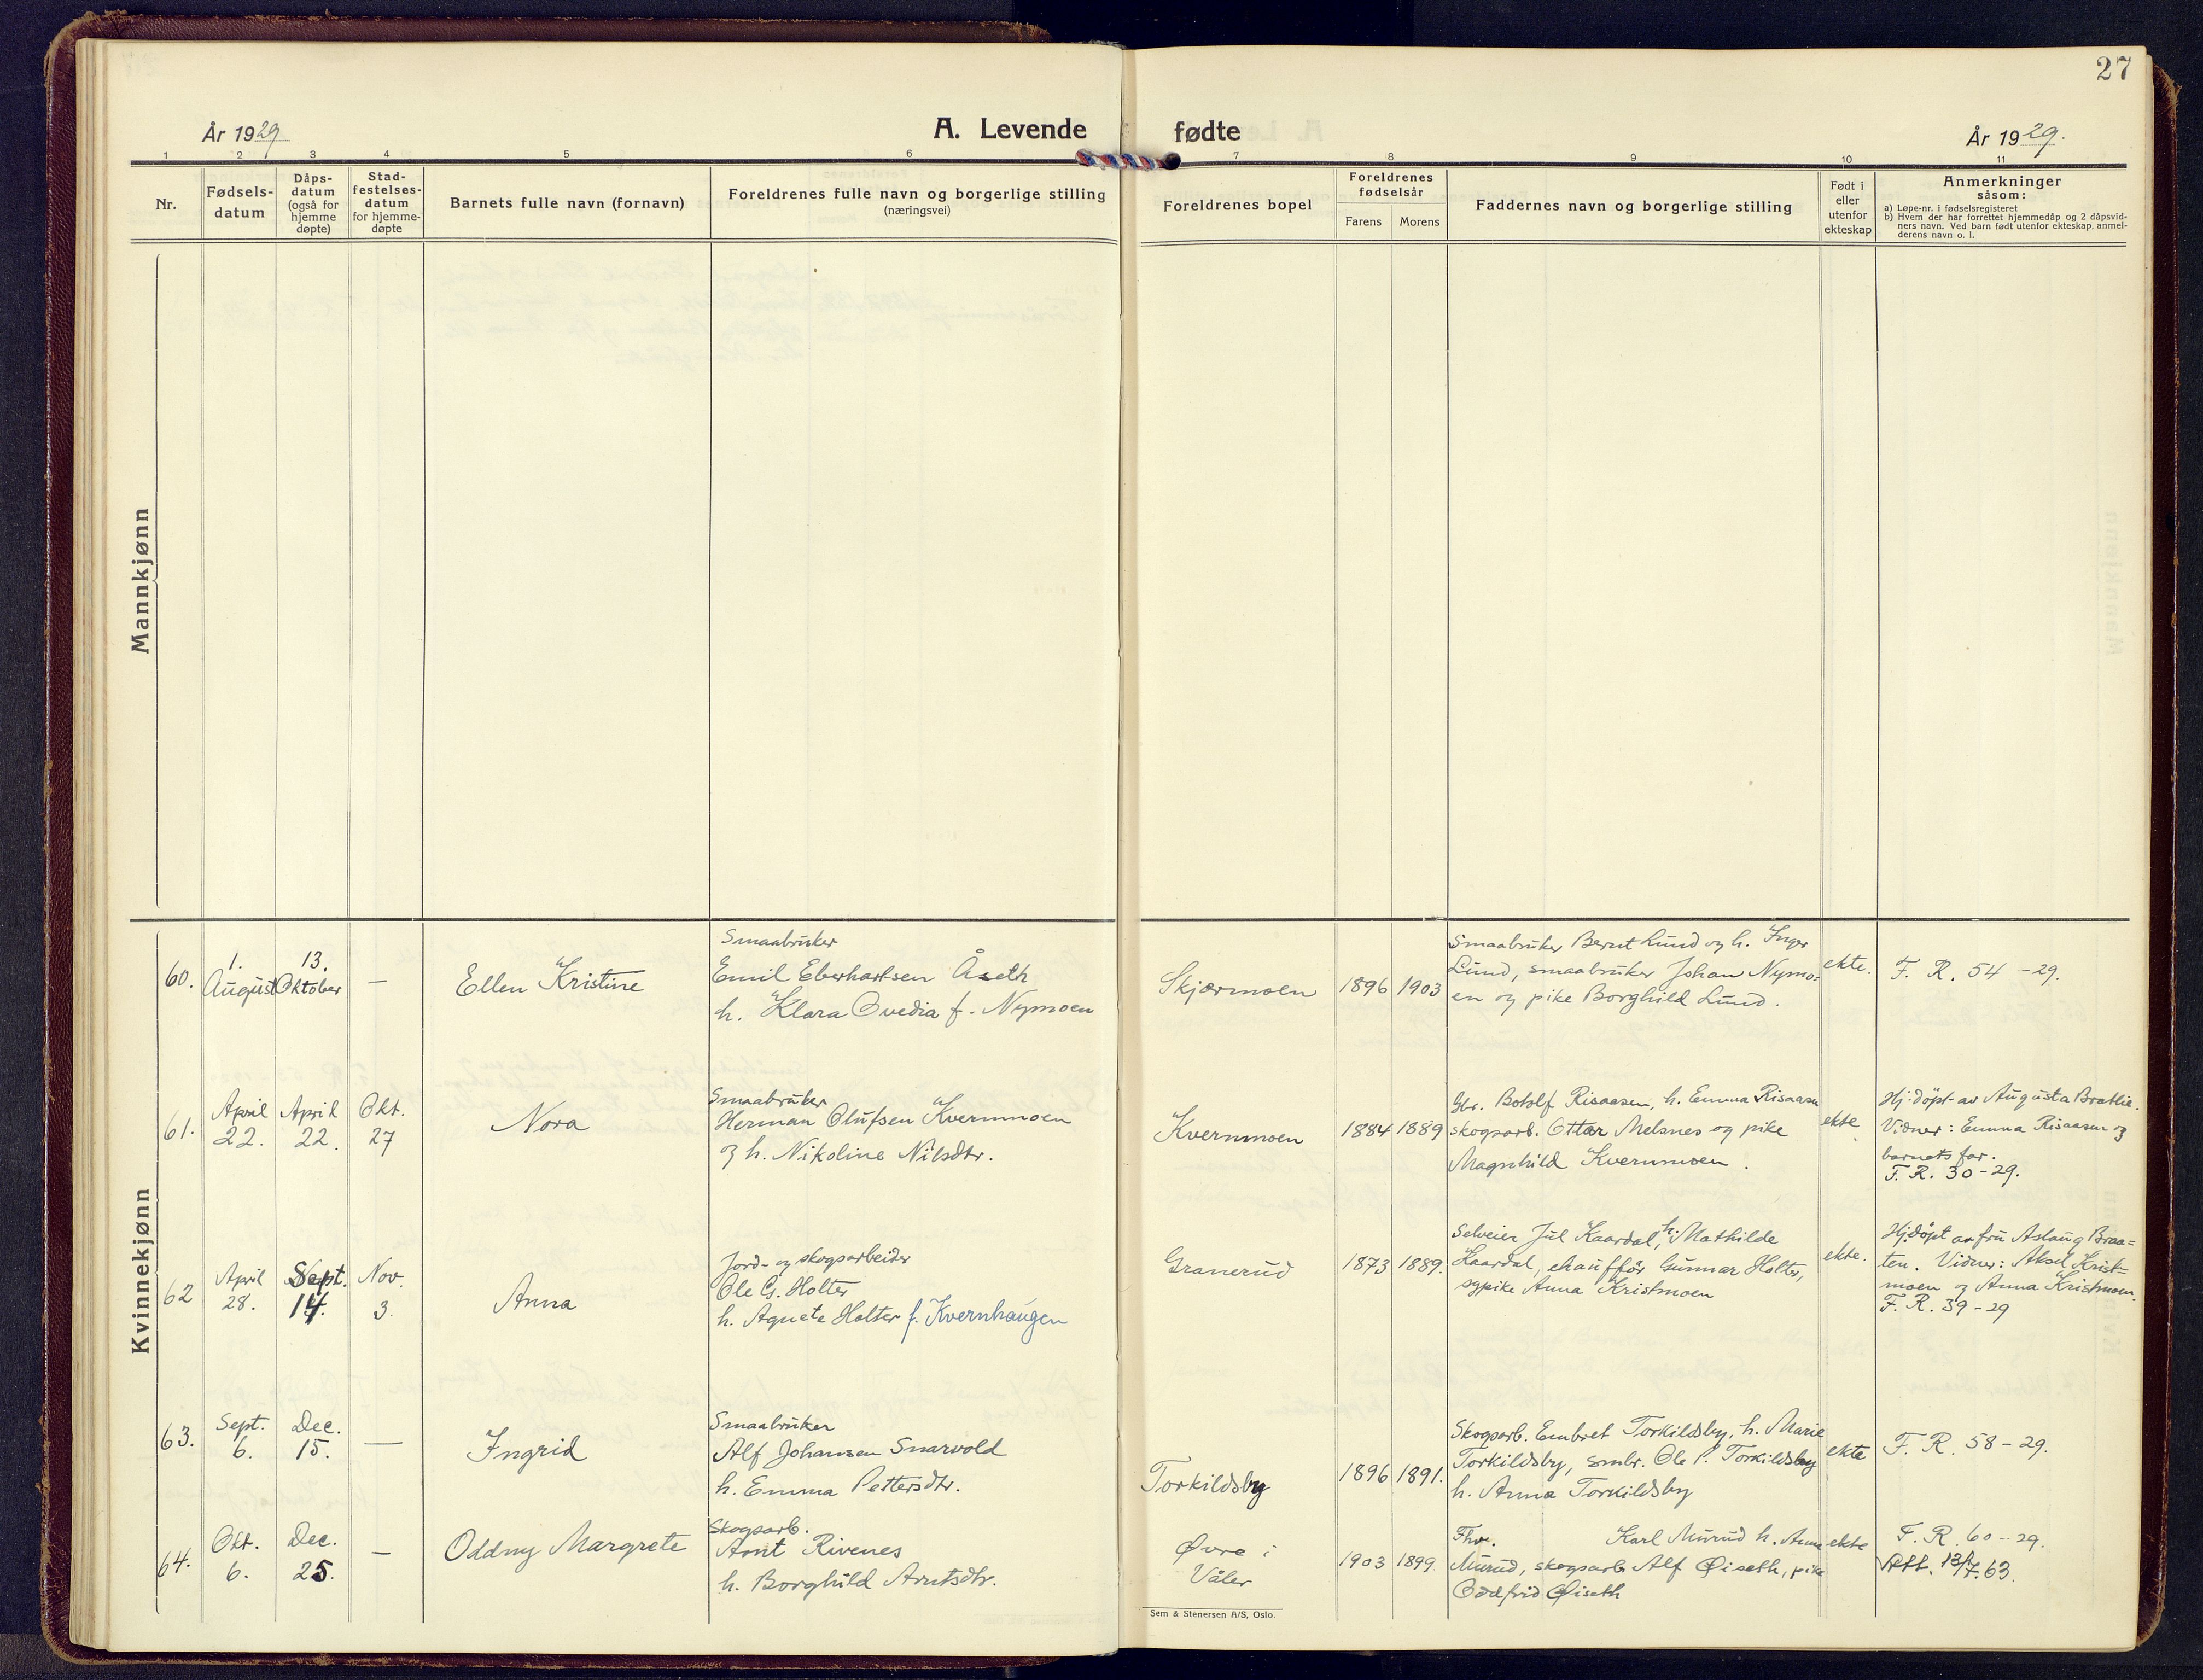 27
År 1929
A. Levende fødte
År 1929.
1 2 3 4 5 6 7 8 9 10 11
Nr.
Fødsels-
datum
Dåps-
datum
(også for
hjemme
døpte)
Stad-
festelses-
datum
for hjemme-
døpte
Barnets fulle navn (fornavn)
Foreldrenes fulle navn og borgerlige stilling
(næringsvei)
Foreldrenes bopel
Foreldrenes
fødselsår
Farens Morens
Faddernes navn og borgerlige stilling
Født i
eller
utenfor
ekteskap
Anmerkninger
såsom:
a) Løpe-nr. i fødselsregisteret
b) Hvem der har forrettet hjemmedåp og 2 dåpsvid-
ners navn. Ved barn født utenfor ekteskap, anmel-
derens navn o. l.
Mannkjønn
Kvinnekjønn
60.
1.
August
13.
Oktober
—
Ellen Kristine
Smaabruker
Emil Eberhartsen Åseth
h. Klara Ovedia f. Nymoen
Skjærmoen
1896 1903
Smaabruker Bernt Lund og h. Inger
Lund, smaabruker Johan Nymo-
en og pike Borghild Lund.
ekte.
F. R. 54 - 29.
61.
April
22.
April
22.
Okt.
27
Nora
Smaabruker
Herman Olufsen Kvernmoen
og h. Nikoline Nilsdtr.
Kvernmoen
1884 1889
Gbr. Botolf Risaasen, h. Emma Risaasen
skogsarb. Ottar Melsnes og pike
Magnhild Kvernmoen.
ekte
Hj.döpt av Augusta Bratlie.
Vidner: Emma Risaasen og
barnets far.
F. R. 30 - 29.
62
April
28.
Sept.
14.
Nov.
3.
Anna
Jord- og skogsarbeider
Ole G. Holter
h. Agnete Holter f. Kvernhaugen
Granerud
1873 1889.
Selveier Jul Kaardal, h. Mathilde
Kaardal, chaufför Gunnar Holter,
sypike Anna Kristmoen
ekte.
Hj.döpt av fru Aslaug Braa-
ten. Vidner: Aksel Krist-
moen og Anna Kristmoen.
F. R. 39 - 29
63.
Sept.
6.
Dec.
15.
—
Ingrid
Smaabruker
Alf Johansen Snarvold
h. Emma Pettersdtr.
Torkildsby
1896 1891.
Skogsarb. Embret Torkildsby, h. Marie
Torkildsby, smbr. Ole P. Torkildsby
h. Anna Torkildsby
ekte
F. R. 58 - 29.
64.
Okt.
6.
Dec.
25.
—
Oddny Margrete
Skogsarb.
Arnt Rivenes
h. Borghild Arntsdtr.
Øvre i
Våler
1903 1899.
Fhv. Karl Murud h. Anne
Murud, skogsarb Alf Øiseth, pike
Oddfrid Øiseth
ekte
F. R. 60 - 29.
Att. 13/7.63.
Sem & Stenersen A/S, Oslo.